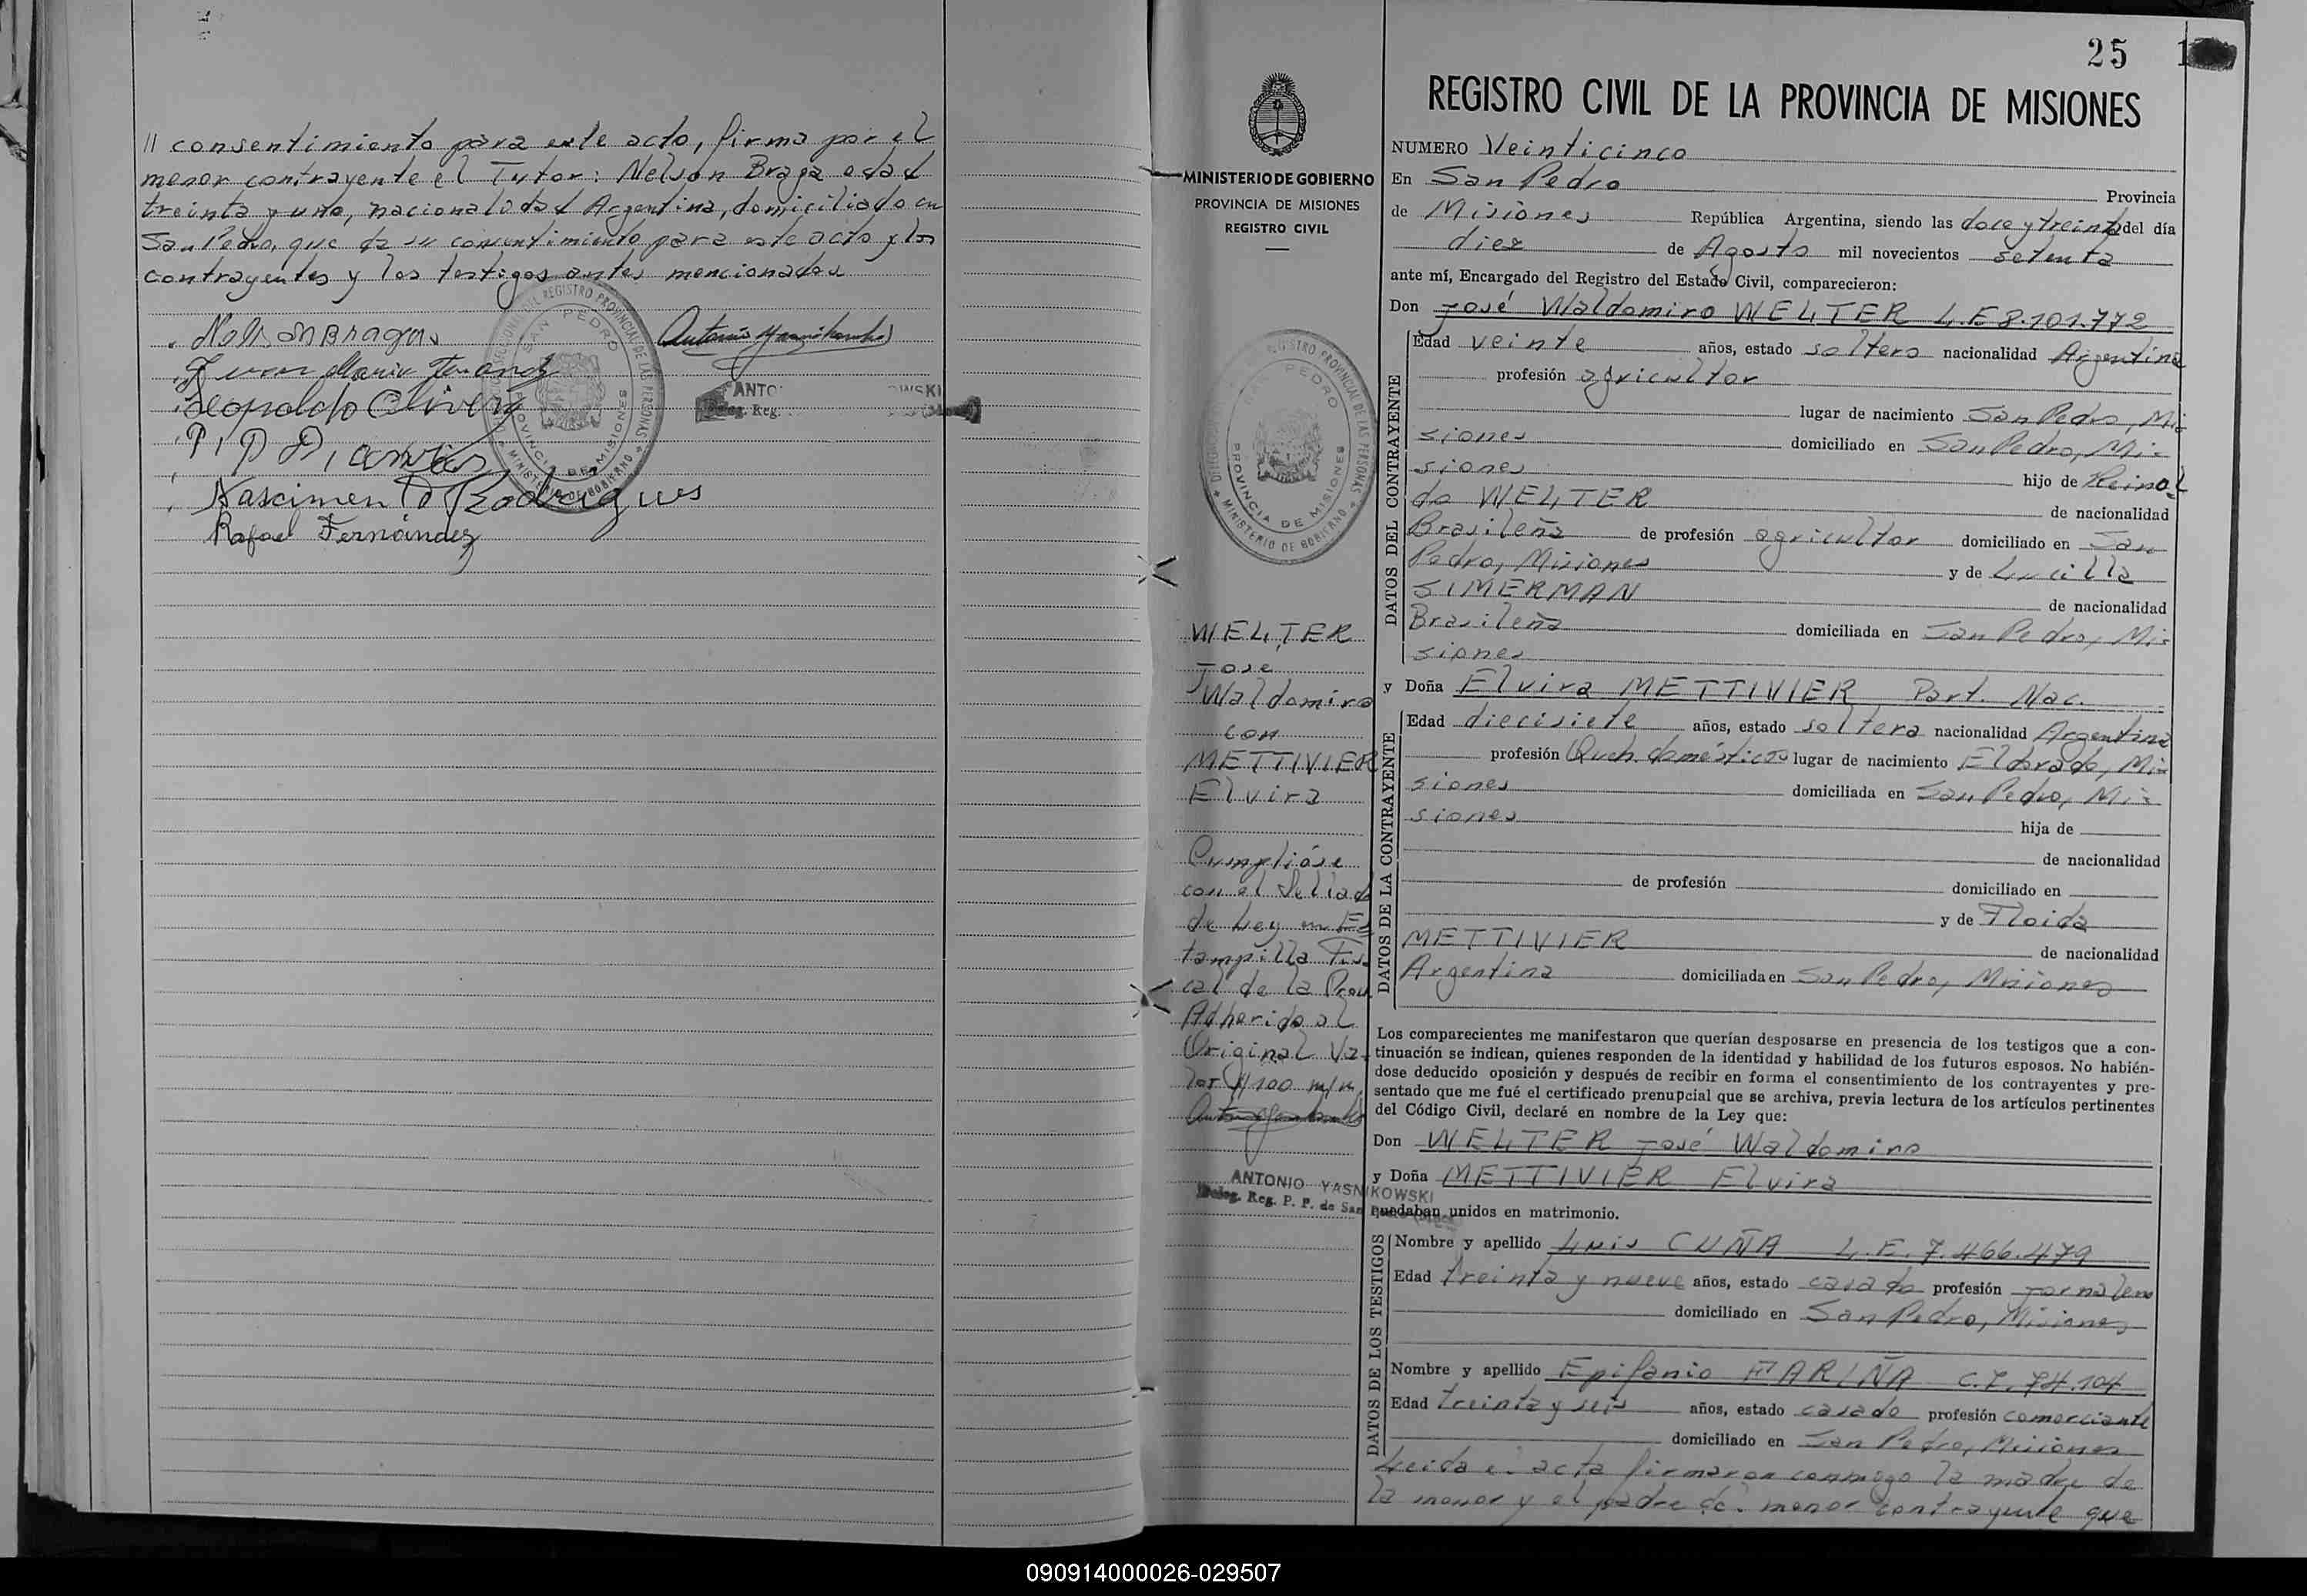 // consentimiento para este acto, firma por el
menor contrayente el Tutor: Nelson Braga edad
treinta y uno, nacionalidad Argentina, domiciliado en
San Pedro, que da su consentimiento para este acto y los
contrayentes y los testigos antes mencionados
Nelson Braga
Leopoldo Olivera
Nascimento Rodrigues
Rafael Fernández
SAN PEDRO
PROVINCIA DE MISIONES
MINISTERIO DE GOBIERNO
ANTO OWSKI
Deleg. Reg.
25
REGISTRO CIVIL DE LA PROVINCIA DE MISIONES
MINISTERIO DE GOBIERNO
PROVINCIA DE MISIONES
REGISTRO CIVIL
REGISTRO PROVINCIAL DE LAS PERSONAS
SAN PEDRO
PROVINCIA DE MISIONES
MINISTERIO DE GOBIERNO
WELTER
José
Waldomiro
con
METTIVIER
Elvira
Cumplióse
con el Sellado
de Ley en Es
tampilla Fis
cal de la Prov
Adherida al
Original Va-
lor $100 m/n
ANTONIO YASNIKOWSKI
Deleg. Reg. P. P. de San
NUMERO Veinticinco
En San Pedro Provincia
de Misiones República Argentina, siendo las doce y treinta del día
diez de Agosto mil novecientos setenta
ante mí, Encargado del Registro del Estado Civil, comparecieron:
Don José Waldomiro WELTER L.E 8.101.772
DATOS DEL CONTRAYENTE
Edad veinte años, estado soltero nacionalidad Argentina
profesión agricultor
lugar de nacimiento San Pedro, Mi-
siones domiciliado en San Pedro, Mi-
siones hijo de Reinal
do WELTER de nacionalidad
Brasileña de profesión agricultor domiciliado en San
Pedro, Misiones y de Lucilla
SIMERMAN de nacionalidad
Brasileña domiciliada en San Pedro, Mi-
siones
y Doña Elvira METTIVIER Part. Nac.
DATOS DE LA CONTRAYENTE
Edad diecisiete años, estado soltera nacionalidad Argentina
profesión Queh. domésticos lugar de nacimiento Eldorado, Mi-
siones domiciliada en San Pedro, Mi-
siones hija de
de nacionalidad
de profesión domiciliado en
y de Floida
METTIVIER de nacionalidad
Argentina domiciliada en San Pedro, Misiones
Los comparecientes me manifestaron que querían desposarse en presencia de los testigos que a con-
tinuación se indican, quienes responden de la identidad y habilidad de los futuros esposos. No habién-
dose deducido oposición y después de recibir en forma el consentimiento de los contrayentes y pre-
sentado que me fué el certificado prenupcial que se archiva, previa lectura de los artículos pertinentes
del Código Civil, declaré en nombre de la Ley que:
Don WELTER José Waldomiro
y Doña METTIVIER Elvira
quedaban unidos en matrimonio.
DATOS DE LOS TESTIGOS
Nombre y apellido Luis CUÑA L.E. 7.466.479
Edad treinta y nueve años, estado casado profesión jornalero
domiciliado en San Pedro, Misiones
Nombre y apellido Epifanio FARIÑA C.I. 74.104
Edad treinta y seis años, estado casado profesión comerciante
domiciliado en San Pedro, Misiones
Leída el acta firmaron conmigo la madre de
la menor y el padre del menor contrayente que
090914000026-029507